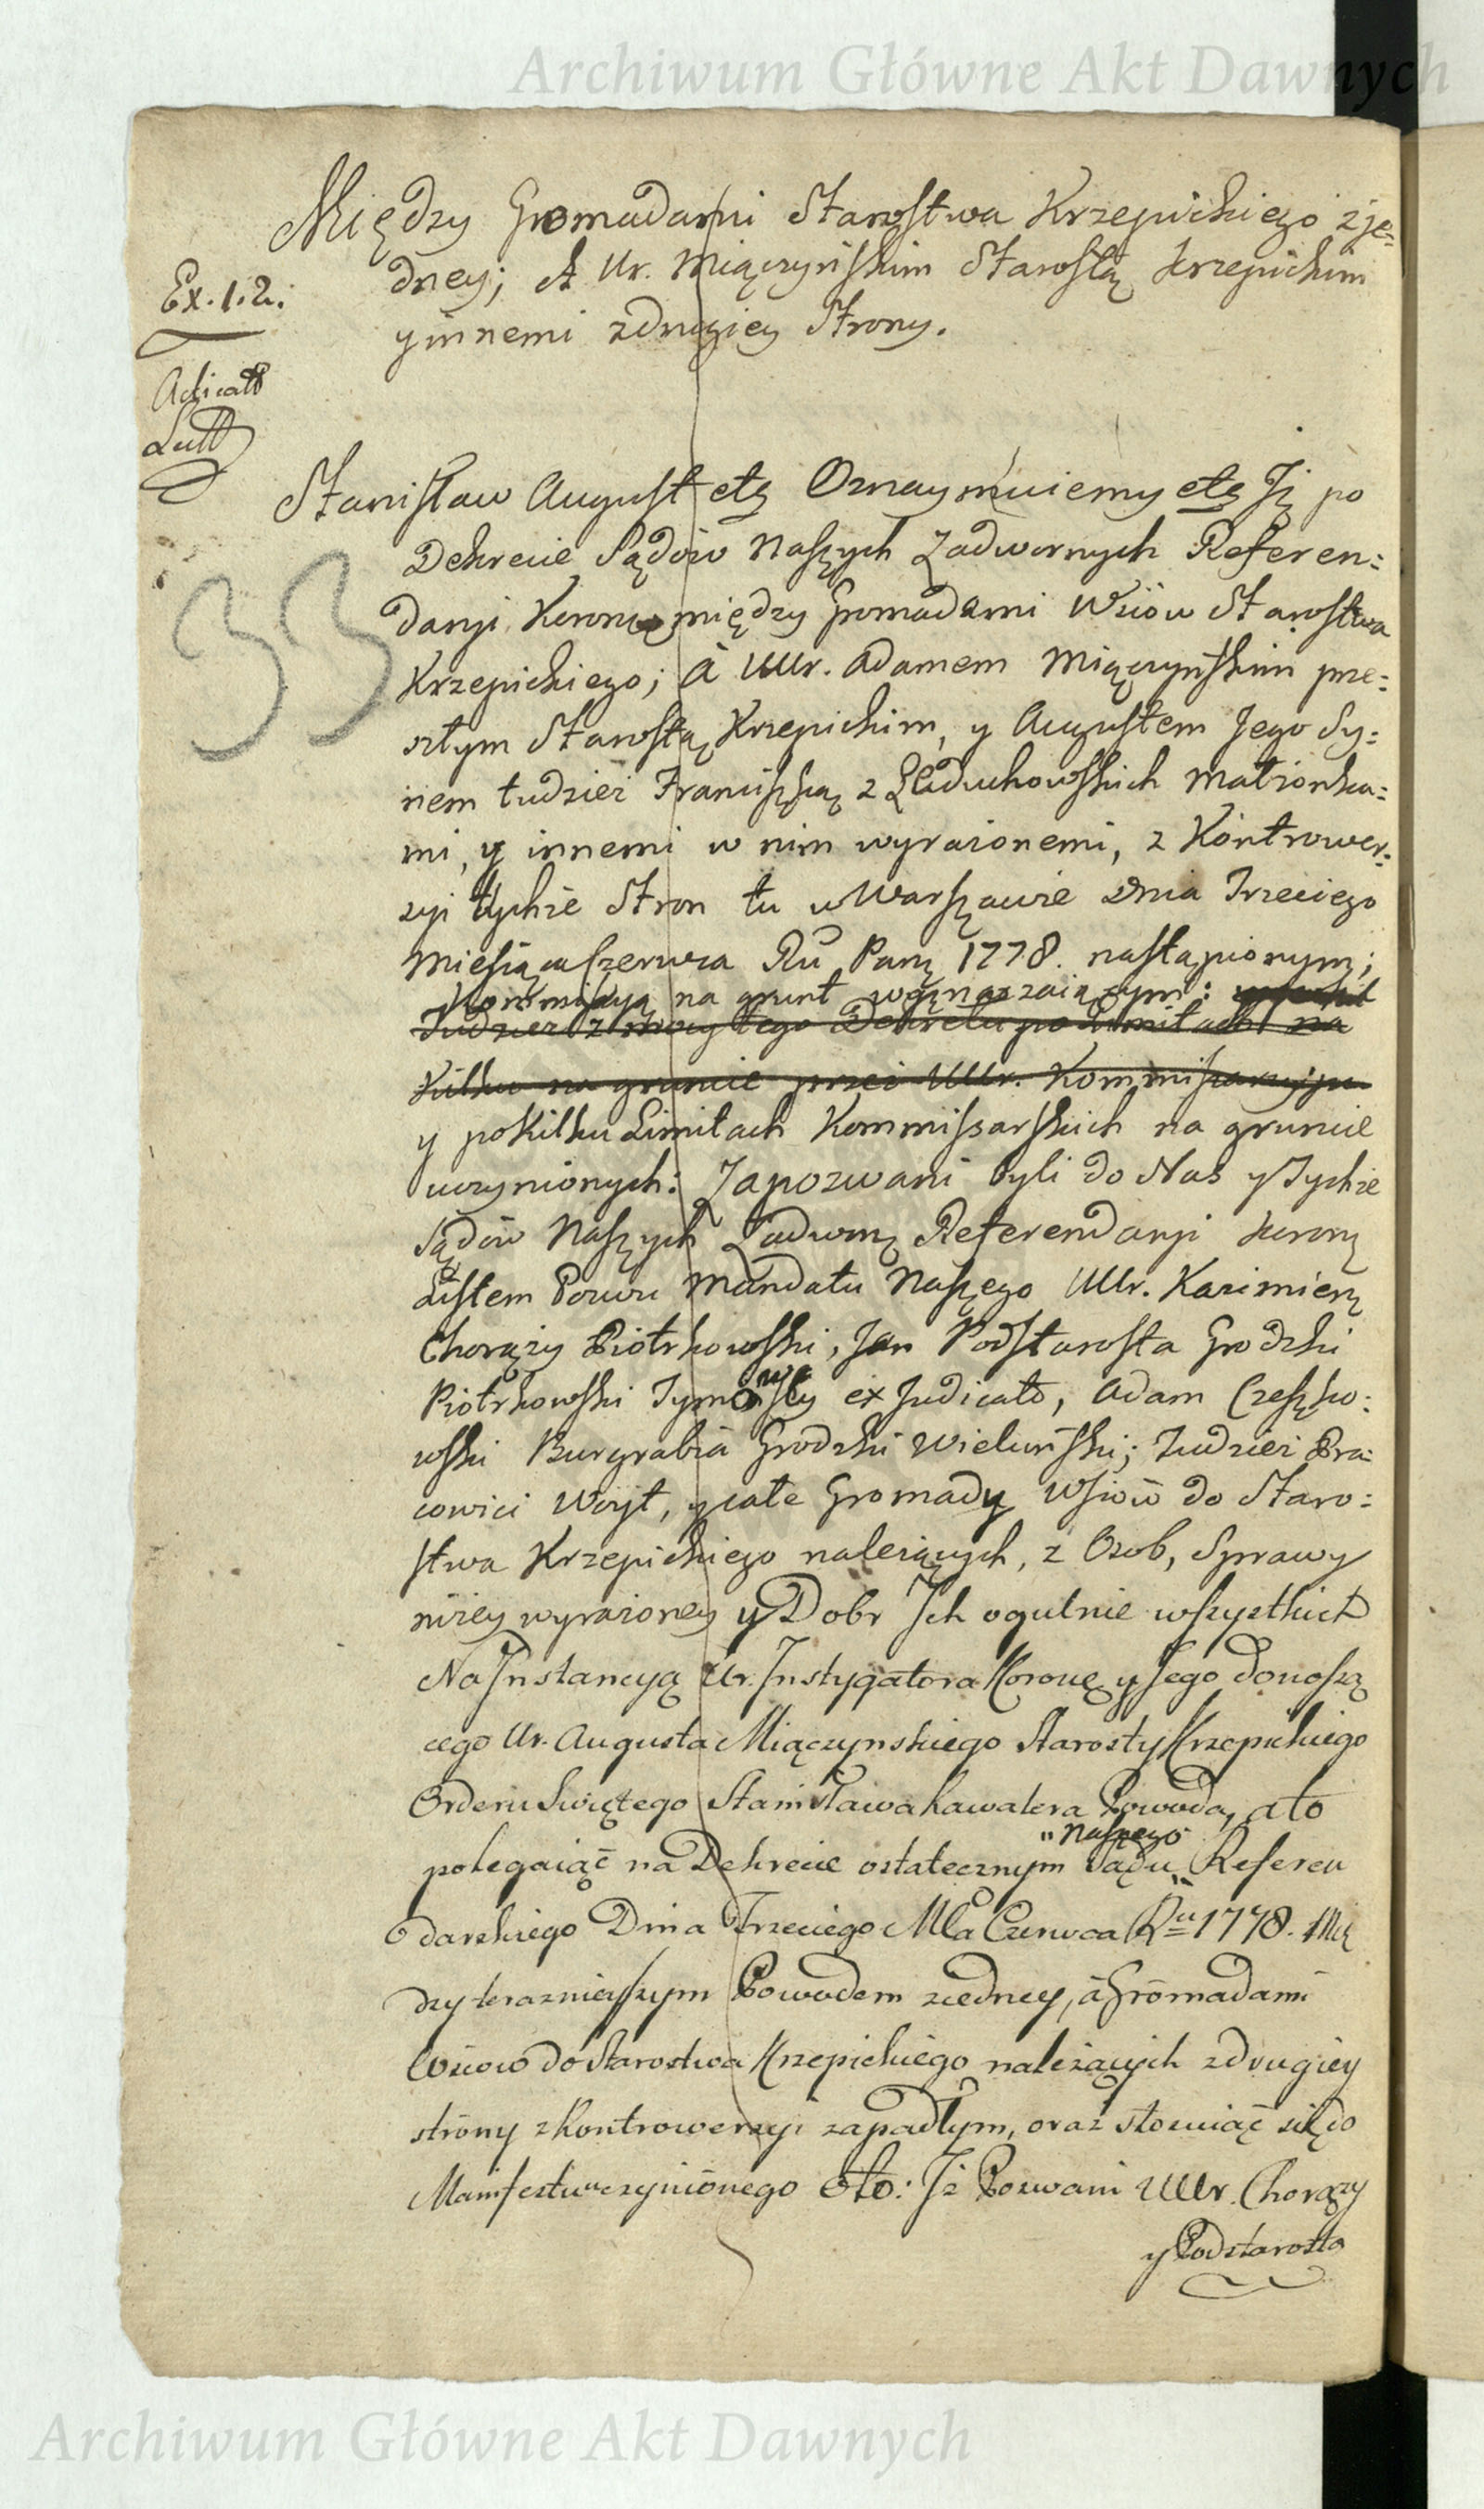 Archiwum Główne Akt Dawnych
Między Gromadami Starostwa Krzepickiego z je=
dney; A Ur. Miączyńskim Starostą Krzepickim
y innemi z drugiey Strony.
Ex. 1. 2.
33
Stanisław August etc Oznaymuiemy etc Iż po
Dekrecie Sądow Naszych Zadwornych Referen=
daryi Koronney między Gromadami Wsiow Starostwa
Krzepickiego; à UUr. Adamem Miączyńskim prze=
szłym Starostą Krzepickim, y Augustem Jego Sy=
nem tudzież Franciszką z Leduchowskich Małżonka=
mi, y innemi w nim wyrażonemi, z Kontrower=
syi tychże Stron tu w Warszawie dnia Trzeciego
Miesiąca Czerwca Ru Pańs 1778. nastąpionym;
Kommissyą na grunt wyznaczaiącym:
Tudzież z mocy tego Dekretu po Limitach na
Kilku na gruncie przez UUr. Kommissarzy
y po Kilku Limitach Kommissarskich na gruncie
uczynionych: Zapozwani byli do Nas y Tychże
Sądów Naszych Zadwor Referendaryi Koron
Listem Pozwu Mandatu Naszego UUr. Kazimierz
Chorąży Piotrkowski, Jan Podstarosta Grodzki
Piotrkowski Tymowscy ex Judicato, Adam Czeszko=
wski Burgrabia Grodzki Wieluński; Tudzież Pra=
cowici Woyt, y całe Gromady Wsiow do Staro=
stwa Krzepickiego należących, z Osob, Sprawy
niżey wyrażoney y Dobr Ich ogulnie wszystkich
Na Instancyą Ur. Instygatora Koronę y Jego Donoszą
cego Ur. Augusta Miączynskiego Starosty Krzepickiego
Orderu Swiętego Stanisława Kawalera Powoda, a to
polegaiąc na Dekrecie ostatecznym Sądu „Naszego“ Referen
darskiego Dnia Trzeciego Mca Czerwca Ru 1778. Mię
dzy teraznieyszym Powodem z iedney, à Gromadami
Wsiow do Starostwa Krzepickiego należących z drugiey
strony z Kontrowersyi zapadłym, oraz stosuiąc się do
Manifestu uczynionego oto: Iż Pozwani UUr. Chorąży
y Podstarosta
Archiwum Główne Akt Dawnych